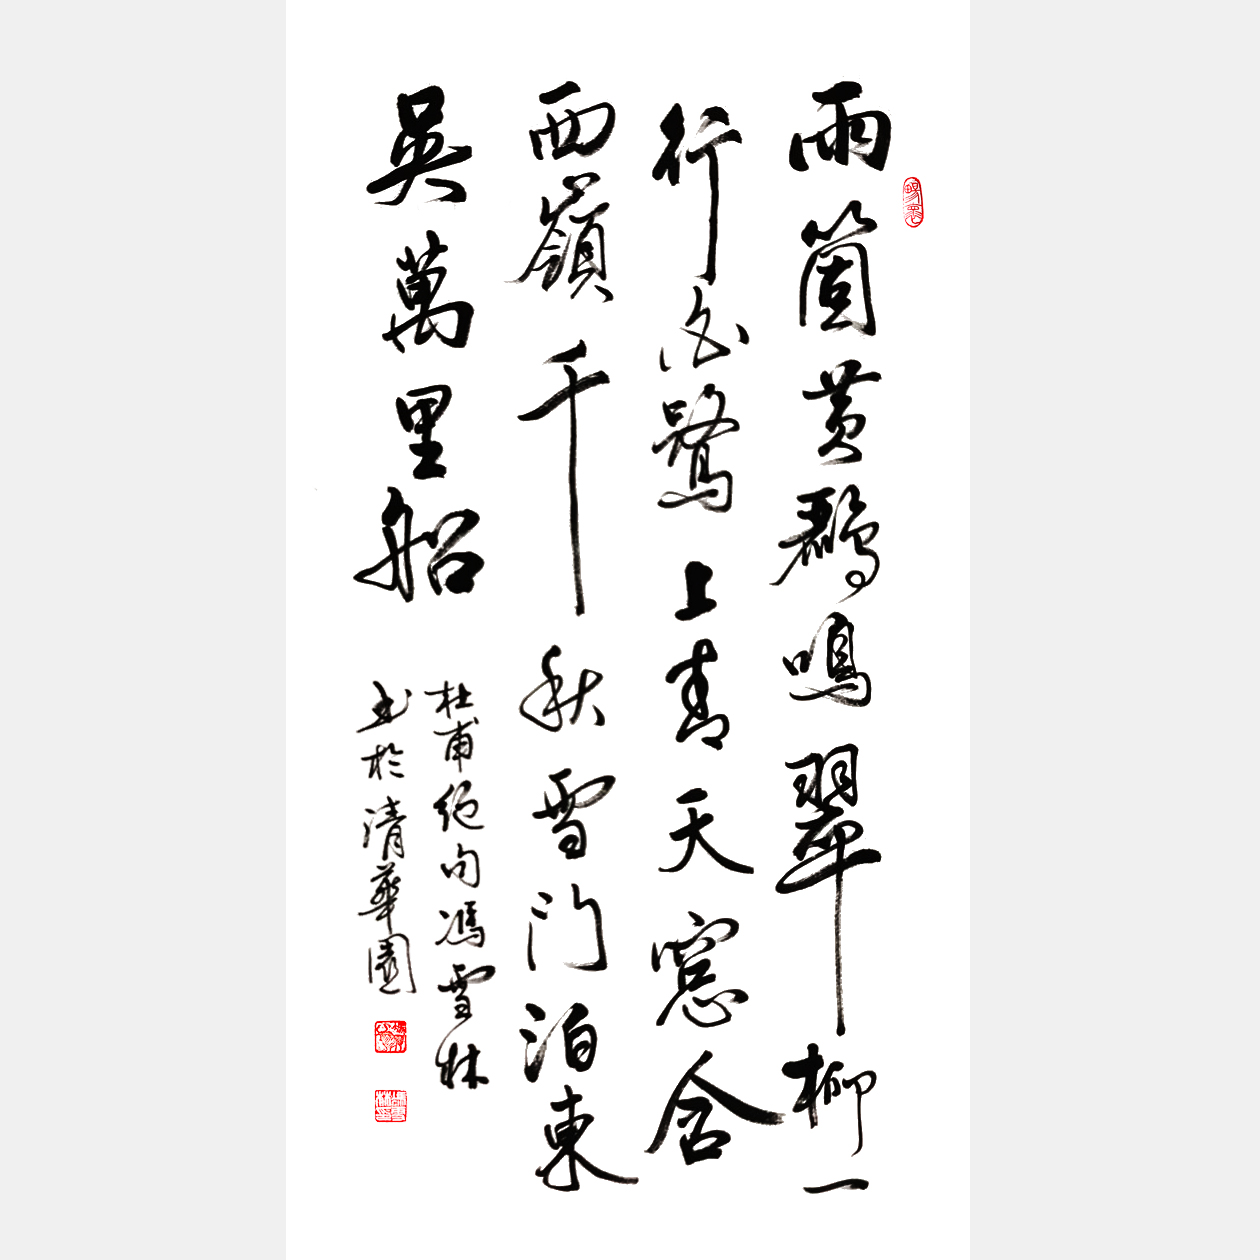 兩箇黃鸝鳴翠柳一
行白鷺上青天窻含
西嶺千秋雪門泊東
吳萬里船
杜甫絕句馮雪林
书於清華園